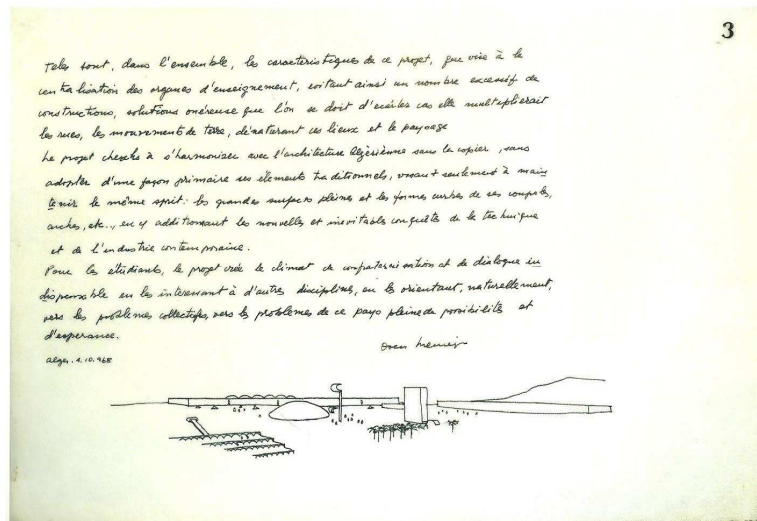 3
Teles sont, dans l'ensemble, les caracteristiques de ce projet, que vise à la
centralisation des organes d'enseignement, evitant ainsi un nombre excessif de
constructions, solutions onéreuse que l'on se doit d'eviter cas elle multiplierait
les rues, les mouvements de terre, dénaturant ces lieux et le paysage
Le projet cherche à s'harmoniser avec l'architecture Algèrienne sans la copier, sans
adopter d'une façon primaire ses élements traditionnels, visant seulement à main
tenir le même sprit: les grandes surfaces pleines et les formes curbes de ses coupoles,
arches, etc.., en y additionant les nouvelles et inevitables conquêtes de la technique
et de l'industrie contemporaine.
Pour les étudiants, le projet crée le climat de confraternisation et de dialogue in
dispensable en les interessant à d'autres disciplines, en les orientant, naturellement,
vers les problèmes collectifs, vers les problèmes de ce pays pleins de possibilités et
d'esperance.
Alger. 4.10.968